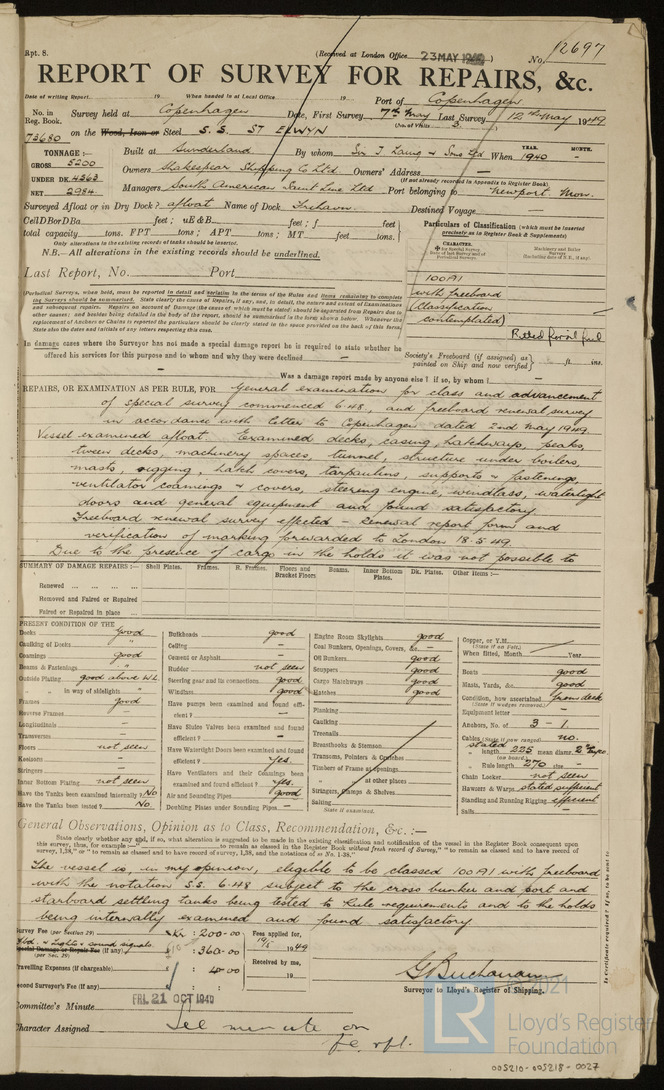 Rpt. 8.
(Received at London Office 23 MAY 1949)
No. 12697
REPORT OF SURVEY FOR REPAIRS, &c.
Date of writing Report 19 When handed in at Local Office 19 Port of Copenhagen
No. in Reg. Book. Survey held at Copenhagen Date, First Survey 7th May Last Survey 12th May 1949
(No. of Visits 3.)
73680 on the Wood, Iron or Steel S.S. ST ELWYN
TONNAGE:—
GROSS 5200
UNDER DK. 4863
NET 2984
Built at Sunderland By whom Sir J Laing & Sons Ltd When 1940
YEAR. MONTH.
Owners Shakespear Shipping Co Ltd. Owners' Address —
(If not already recorded in Appendix to Register Book).
Managers South American Saint Line Ltd Port belonging to Newport Mon.
Surveyed Afloat or in Dry Dock? afloat Name of Dock Destined Voyage
CellDBorDBa feet; uE&B feet; f feet
total capacity tons. FPT tons; APT tons; MT feet tons.
Only alterations in the existing records of tanks be inserted.
N.B.—All alterations in the existing records should be underlined.
Particulars of Classification (which must be inserted precisely as in Register Book & Supplements)
CHARACTER.
100A1
with freeboard
(Classification
contemplated)
Fitted for oil fuel
Last Report, No. Port
In damage cases where the Surveyor has not made a special damage report he is required to state whether he
offered his services for this purpose and to whom and why they were declined —
Society's Freeboard (if assigned) as painted on Ship and now verified ft. ins.
Was a damage report made by anyone else? If so, by whom? —
REPAIRS, OR EXAMINATION AS PER RULE, FOR General examination for class and advancement
of special survey commenced 6.48, and freeboard renewal survey
in accordance with letter to Copenhagen dated 2nd May 1949.
Vessel examined afloat. Examined decks, casing, hatchways, peaks,
tween decks, machinery spaces, tunnel, structure under boilers,
masts, rigging, hatch covers, tarpaulins, supports & fastenings,
ventilator coamings & covers, steering engine, windlass, watertight
doors and general equipment and found satisfactory.
Freeboard renewal survey effected – renewal report form and
verification of marking forwarded to London 18.5.49.
Due to the presence of cargo in the holds it was not possible to
SUMMARY OF DAMAGE REPAIRS:— Shell Plates. Frames. R. Frames. Floors and Bracket Floors Beams. Inner Bottom Plates. Dk. Plates. Other Items:—
Renewed
Removed and Faired or Repaired
Faired or Repaired in place
PRESENT CONDITION OF THE
Decks good
Caulking of Decks "
Coamings good
Beams & Fastenings "
Outside Plating good above W.L.
" " in way of sidelights "
Frames good
Reverse Frames —
Longitudinals —
Transverses —
Floors not seen
Keelsons —
Stringers —
Inner Bottom Plating not seen
Have the Tanks been examined internally? No
Have the Tanks been tested? No.
Bulkheads good
Ceiling —
Cement or Asphalt —
Rudder not seen
Steering gear and its connections good
Windlass good
Have pumps been examined and found efficient? —
Have Sluice Valves been examined and found efficient? —
Have Watertight Doors been examined and found efficient? Yes.
Have Ventilators and their Coamings been examined and found efficient? Yes.
Air and Sounding Pipes good
Doubling Plates under Sounding Pipes —
Engine Room Skylights good
Coal Bunkers, Openings, Covers, &c. —
Oil Bunkers good
Scuppers good
Cargo Hatchways good
Hatches good
Planking
Caulking
Treenails
Breasthooks & Stemson
Transoms, Pointers & Crutches
Timbers of Frame at openings
" " at other places
Stringers, Clamps & Shelves
Salting
State if examined.
Copper, or Y.M.
(State if on Felt.)
When fitted, Month Year
Boats good
Masts, Yards, &c. good
Condition, how ascertained from deck
(State if wedges removed)
Equipment letter —
Anchors, No. of 3 – 1
Cables (State if now ranged) no.
stated
" length 225 mean diamr.
(on board)
" Rule length 270 size —
Chain Locker not seen
Hawsers & Warps stated sufficient
Standing and Running Rigging efficient
Sails —
General Observations, Opinion as to Class, Recommendation, &c.:—
The vessel is in my opinion, eligible to be classed 100A1 with freeboard
with the notation S.S. 6.48 subject to the cross bunker and port and
starboard settling tanks being tested to Rule requirements and to the holds
being internally examined and found satisfactory.
Survey Fee (per Section 29) Kr. : 200.00
Fbd. + Lights & sound signals
Special Damage or Repair Fee (if any) (per Sec. 29) : 360.00
Travelling Expenses (if chargeable) : 40.00
Second Surveyor's Fee (if any)
Fees applied for, 19/5 1949
Received by me, 19
G. Buchanan
Surveyor to Lloyd's Register of Shipping.
Committee's Minute FRI. 21 OCT 1949
Character Assigned See minute on
F.E. rpt.
© 2021
LR
Lloyd's Register
Foundation
005210-005218-0027